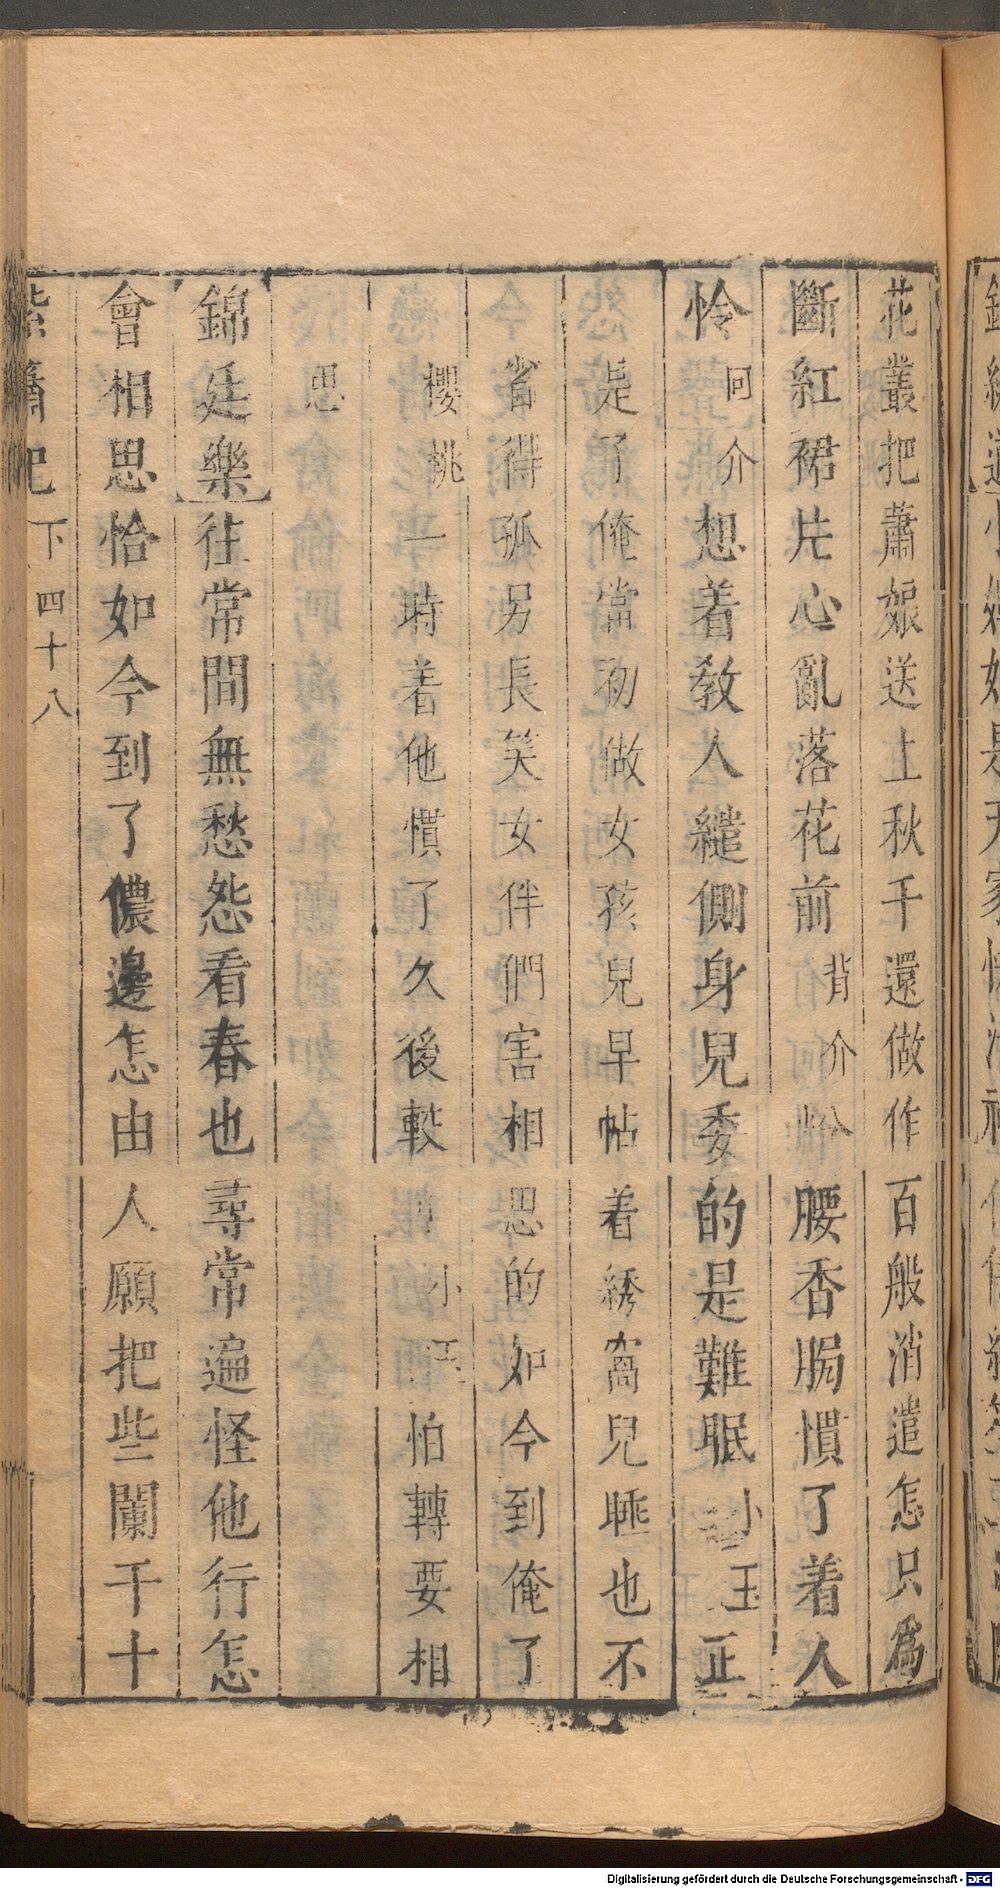 花叢把蕭娘送上秋千還做作百般消遣怎只為
斷紅裙片心亂落花前背介 腰香腸慣了着人
怜 回介想着教人繾側身兒委的是難眠小玉正
是了俺當初做女孩兒早帖着綉窩兒睡也不
省得孤另長笑女伴們害相思的如今到俺了
櫻桃一時着他慣了久後較 小玉怕轉要相
思
錦廷樂往常間無愁怨看春也尋常遍怪他行怎
會相思恰如今到了儂邊怎由人願把些闌干十
紫簫記 下 四十八
Digitalisierung gefördert durch die Deutsche Forschungsgemeinschaft - DFG